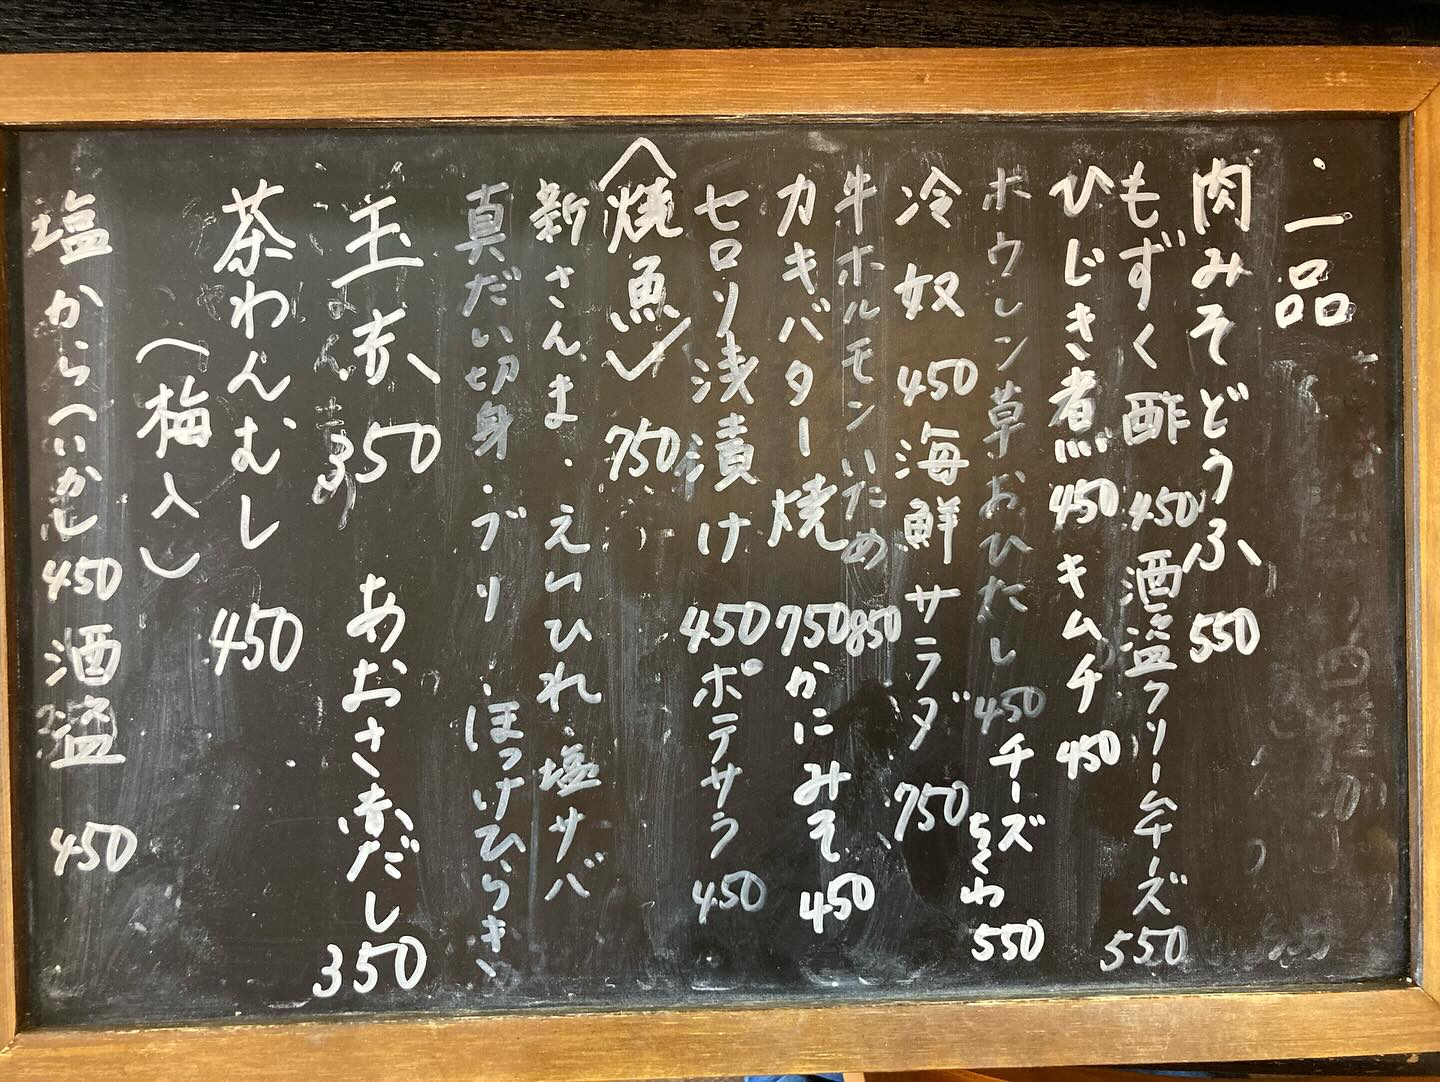 一品
肉みそどうふ 550
もずく酢 450 酒盗クリームチーズ 550
ひじき煮 450 キムチ 450
ホウレン草おひたし 450 チーズちくわ 550
冷奴 450 海鮮サラダ 750
牛ホルモンいため 850
カキバター焼 750 かにみそ 450
セロリ浅漬け 450 ポテサラ 450
〈焼魚〉 750
新さんま・えいひれ・塩サバ
真だい切身・ブリ・ほっけひらき
玉赤 350 あおさ赤だし 350
茶わんむし 450
(梅入り)
塩から(いかし 450 酒盗 450